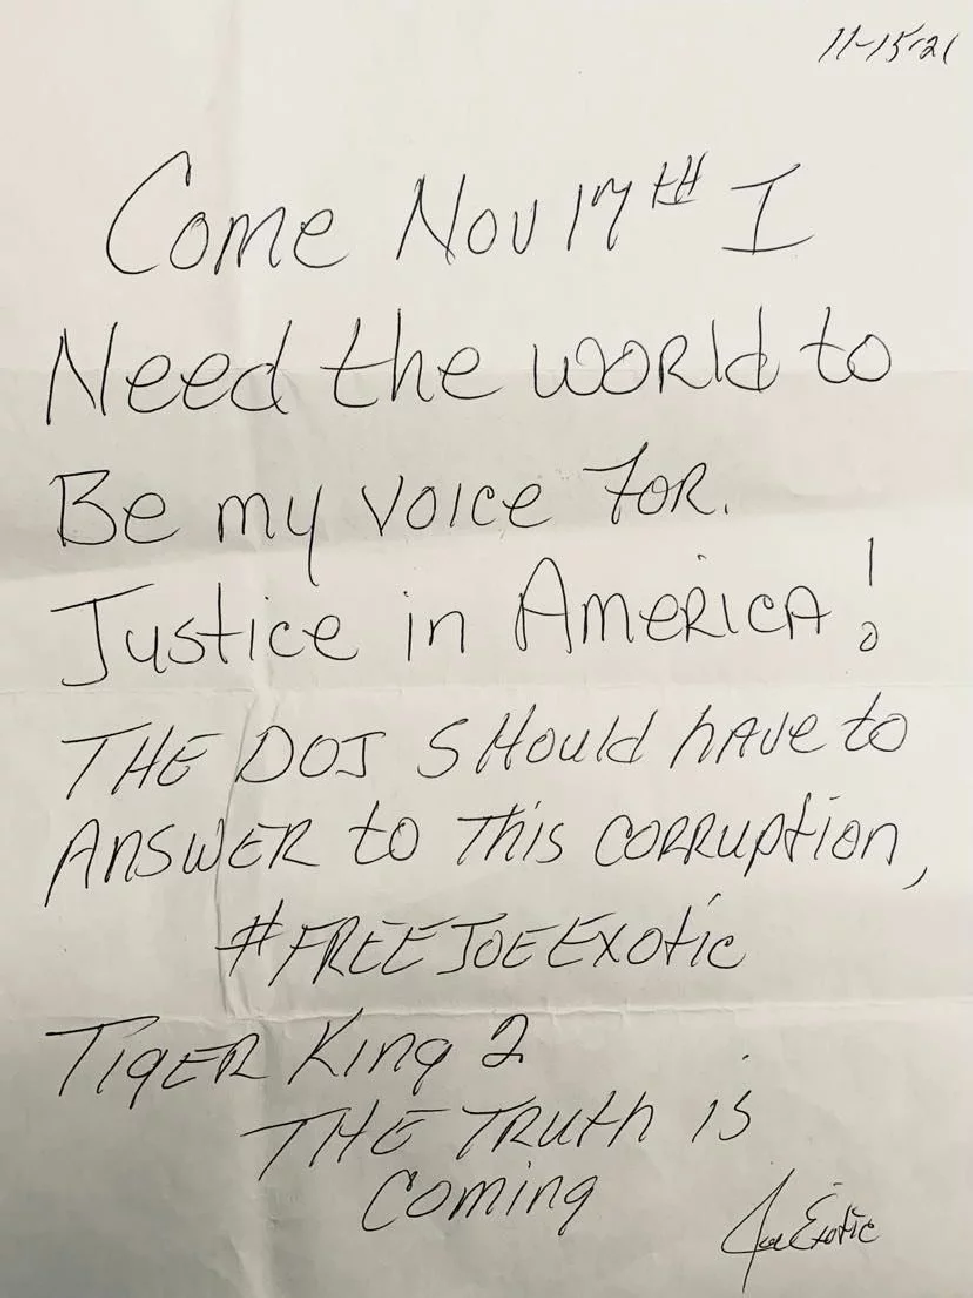 11-15-21
Come Nov 17th I
Need the world to
Be my voice For.
Justice in America!
THE DOJ SHould hAve to
ANSWER to This CORRUption,
#FREEJOEExotic
TigER King 2
THE TRUth is
Coming
Joe Exotic